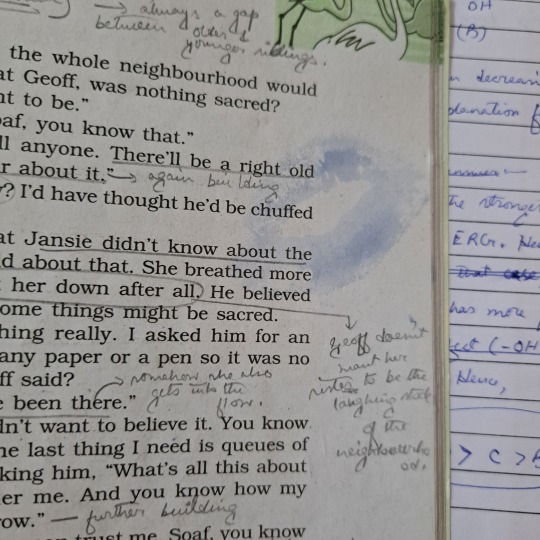 → always a gap
between older &
younger siblings.
the whole neighbourhood would
at Geoff, was nothing sacred?
nt to be."
oaf, you know that."
ll anyone. There'll be a right old
r about it." → again building
y? I'd have thought he'd be chuffed
at Jansie didn't know about the
d about that. She breathed more
t her down after all. He believed
ome things might be sacred.
hing really. I asked him for an
any paper or a pen so it was no
ff said? → somehow she also
gets into the
flow.
e been there."
dn't want to believe it. You know
he last thing I need is queues of
king him, "What's all this about
er me. And you know how my
ow." — further building
trust me, Soaf, you know
Geoff doesn't
want her
sister to be the
laughing stock
of the
neighbourho
od.
OH
(B)
n decreasi
planation
the stronger
ERG. He
has more
(-OH
Hence,
> C >